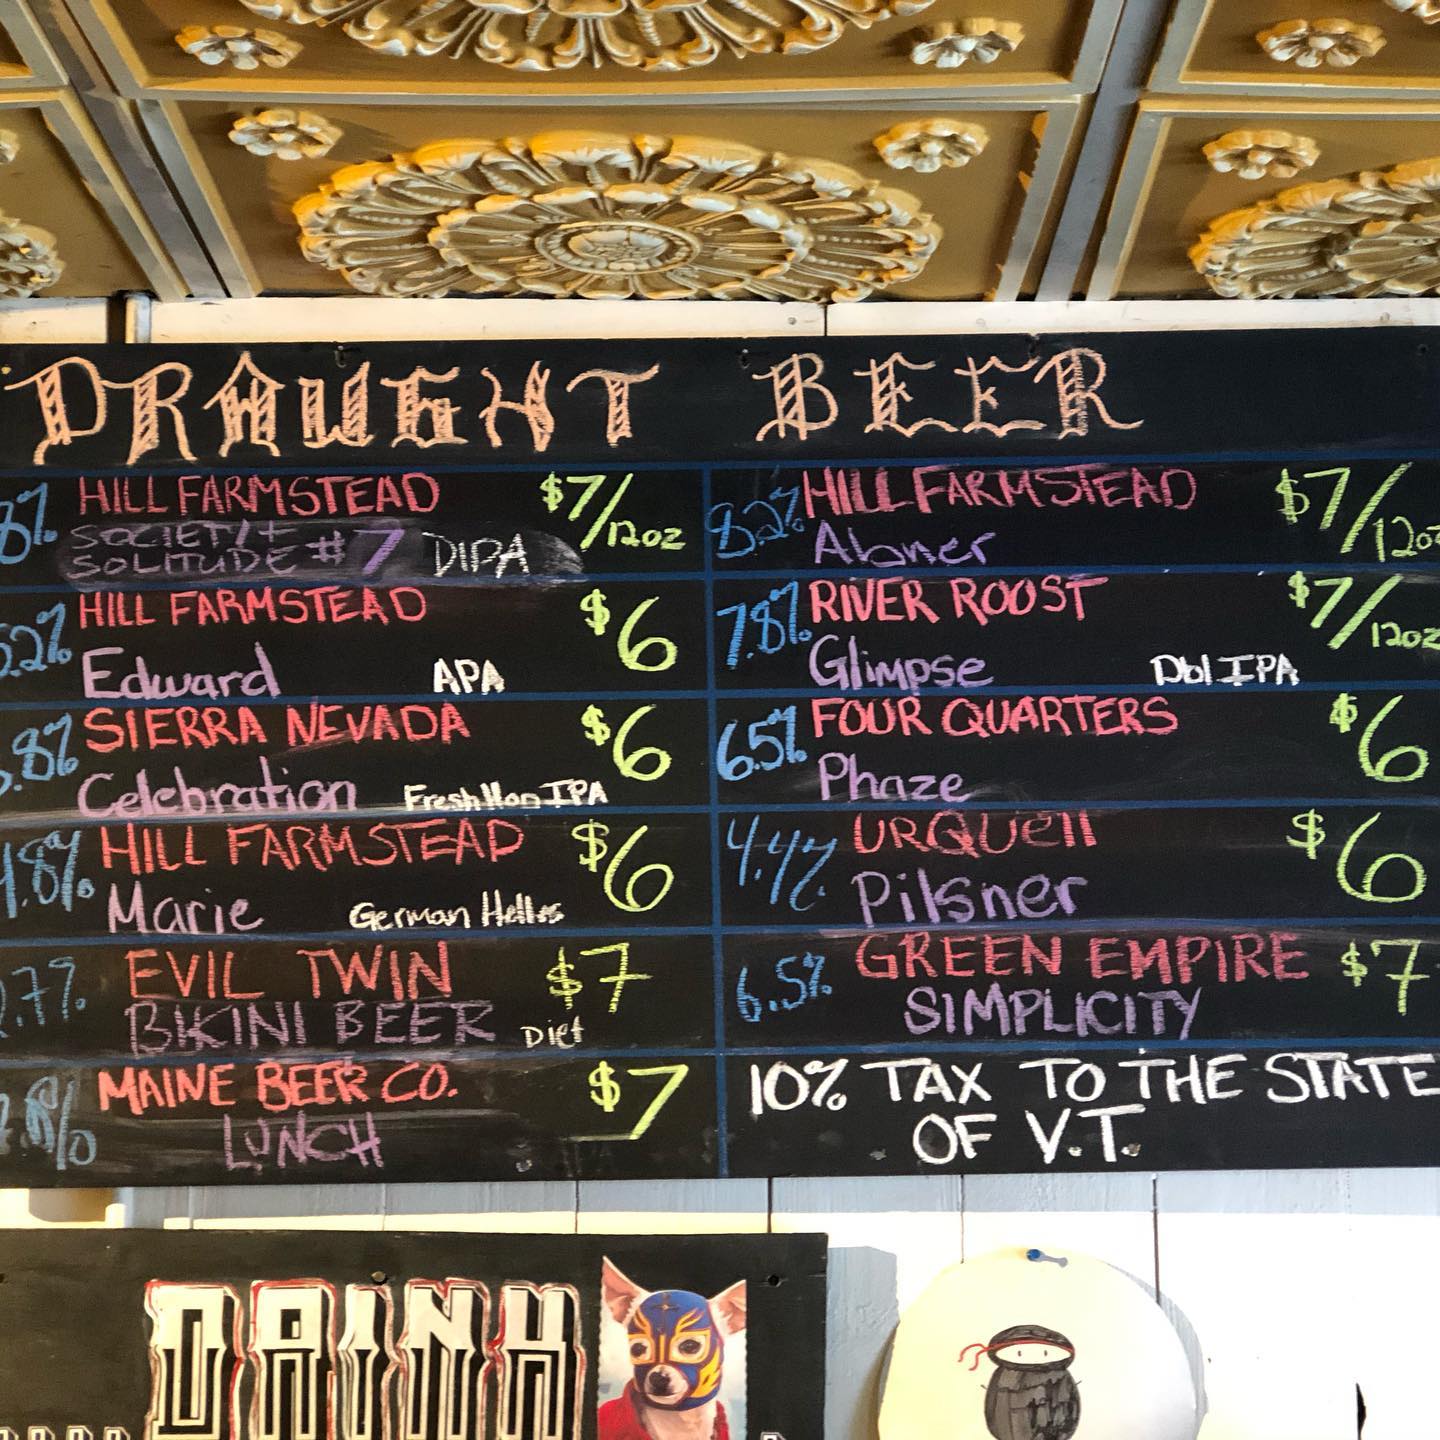 DRAUGHT BEER
8% HILL FARMSTEAD $7/12oz
SOCIETY +
SOLITUDE #7 DIPA
5.2% HILL FARMSTEAD $6
Edward APA
.8% SIERRA NEVADA $6
Celebration Fresh Hop IPA
4.8% HILL FARMSTEAD $6
Marie German Helles
2.7% EVIL TWIN $7
BIKINI BEER Diet
MAINE BEER CO. $7
LUNCH
8.2% HILL FARMSTEAD $7/12oz
Abner
7.8% RIVER ROOST $7/12oz
Glimpse Dbl IPA
6.5% FOUR QUARTERS $6
Phaze
4.4% URQUell $6
Pilsner
6.5% GREEN EMPIRE $7
SIMPLICITY
10% TAX TO THE STATE
OF V.T.
DRINK